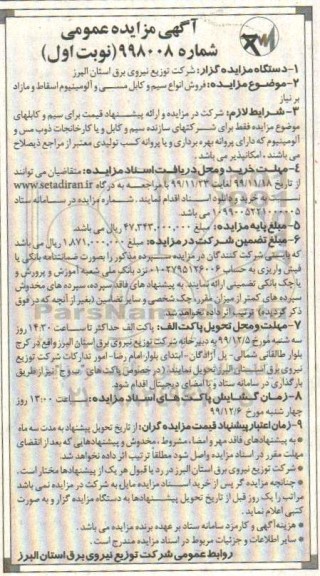 آگهی مزایده عمومی
شماره ۹۹۸۰۰۸ (نوبت اول)
۱- دستگاه مزایده گزار: شرکت توزیع نیروی برق استان البرز
۲- موضوع مزایده: فروش انواع سیم و کابل مسی و آلومینیوم اسقاط و مازاد
بر نیاز
۳- شرایط لازم: شرکت در مزایده و ارائه پیشنهاد قیمت برای سیم و کابلهای
موضوع مزایده فقط برای شرکتهای سازنده سیم و کابل و یا کارخانجات ذوب مس و
آلومینیوم که دارای پروانه بهره برداری و یا پروانه کسب تولیدی معتبر از مراجع ذیصلاح
می باشند، امکانپذیر می باشد.
۴- مهلت خرید و محل دریافت اسناد مزایده: متقاضیان می توانند
از تاریخ ۹۹/۱۱/۱۸ لغایت ۹۹/۱۱/۲۳ با مراجعه به درگاه www.setadiran.ir
نسبت به خرید و دانلود اسناد اقدام نمایند. شماره مزایده در سامانه ستاد
می باشد
۵- مبلغ پایه مزایده: مبلغ ۴۷,۳۴۳,۰۰۰,۰۰۰ ریال می باشد.
۶- مبلغ تضمین شرکت در مزایده: مبلغ ۱,۸۷۱,۰۰۰,۰۰۰ ریال می باشد
که بایستی شرکت کنندگان در مزایده سپرده مذکور را بصورت ضمانتنامه بانکی یا
فیش واریزی به حساب نزد بانک ملی شعبه آموزش و پرورش و
یا چک بانکی تضمینی ارائه نمایند. به پیشنهاد های فاقد سپرده، سپرده های مخدوش
سپرده های کمتر از میزان مقرر، چک شخصی و سایر تضامین (بغیر از آنچه که در فوق
ذکر گردید) ترتیب اثر داده نخواهد شد.
۷- مهلت و محل تحویل پاکت الف: پاکت الف حداکثر تا ساعت ۱۴:۳۰ روز
سه شنبه مورخ ۹۹/۱۲/۵ به دبیرخانه شرکت توزیع نیروی برق استان البرز واقع در کرج
بلوار طالقانی شمالی- پل آزادگان- ابتدای بلوار امام رضا- امور تدارکات شرکت توزیع
نیروی برق استان البرز تحویل نمایند. (در خصوص پاکت های ب و ج نیز از طریق
بارگذاری در سامانه ستاد و با امضای دیجیتال اقدام شود.
۸- زمان گشایش پاکت های اسناد مزایده: ساعت ۱۳:۰۰ روز
چهار شنبه مورخ ۹۹/۱۲/۶
۹- زمان اعتبار پیشنهاد قیمت مزایده گران: از تاریخ تحویل پیشنهاد به مدت سه ماه
* به پیشنهادهای فاقد مهر و امضاء، مشروط، مخدوش و پیشنهادهایی که بعد از انقضای
مهلت مقرر در اسناد مزایده واصل شود مطلقا ترتیب اثر داده نخواهد شد.
* شرکت توزیع نیروی برق استان البرز در رد یا قبول هر یک از پیشنهادها مختار است.
* چنانچه مزایده گر پس از خرید اسناد مزایده مایل به شرکت در مزایده نمی باشد
مراتب را یک روز قبل از تاریخ تحویل پیشنهادها به دستگاه مزایده گزار و به صورت
کتبی اعلام نماید.
* هزینه آگهی و کارمزد سامانه ستاد بر عهده برنده مزایده می باشد.
* سایر اطلاعات و جزئیات مربوط در اسناد مزایده مندرج است.
روابط عمومی شرکت توزیع نیروی برق استان البرز